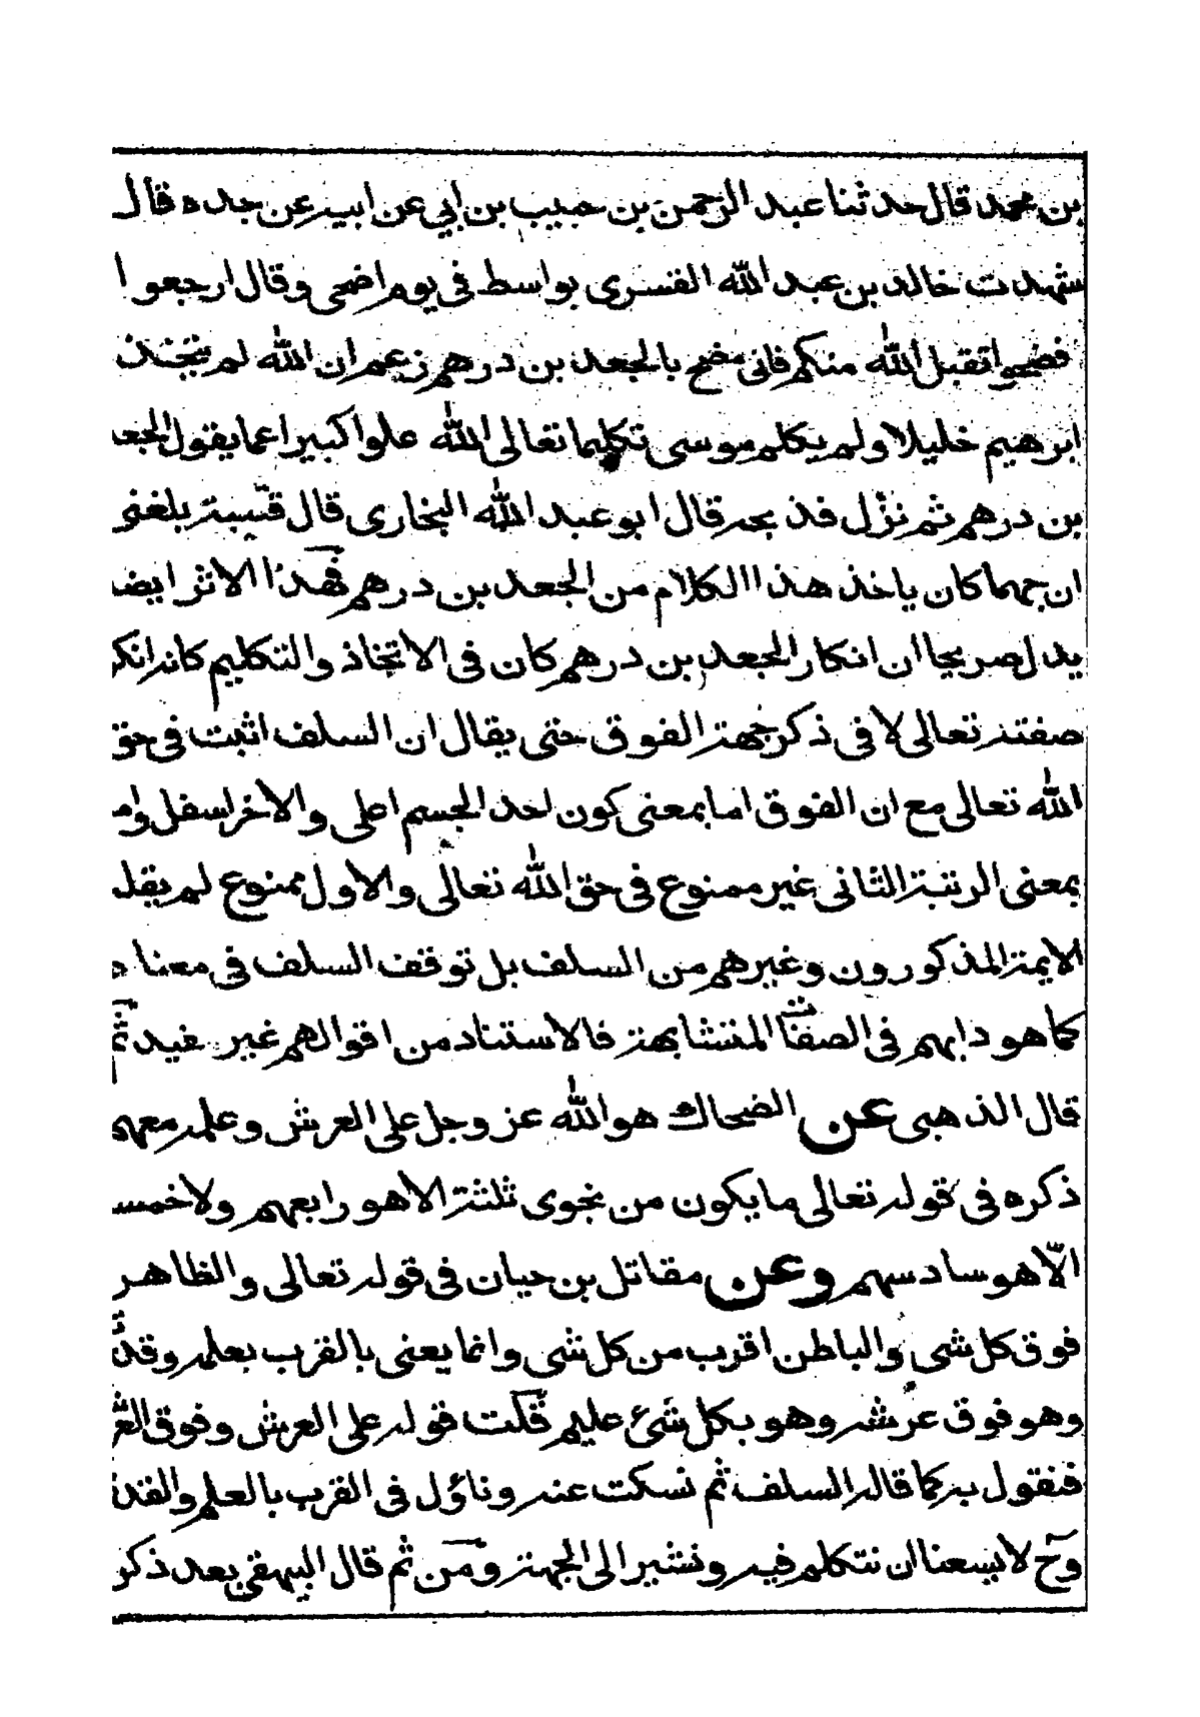 بن محمد قال حدثنا عبد الرحمن بن حبيب بن ابي عن ابيه عن جده قال
شهدت خالد بن عبد الله القسرى بواسط فى يوم اضحى وقال ارجعوا
فضحوا تقبل الله منكم فانى مضح بالجعد بن درهم زعم ان الله لم يتخذ
ابرهيم خليلا ولم يكلم موسى تكليما تعالى الله علوا كبيرا عما يقول الجعد
بن درهم ثم نزل فذبحه قال ابو عبد الله البخارى قال قتيبة بلغنى
ان جهما كان ياخذ هذا الكلام من الجعد بن درهم فهذا الاثر ايضا
يدل صريحا ان انكار الجعد بن درهم كان فى الاتخاذ والتكليم كانه انكر
صفته تعالى لا فى ذكر جهة الفوق حتى يقال ان السلف اثبت فى حق
الله تعالى مع ان الفوق اما بمعنى كون احد الجسم اعلى والاخر اسفل وام
بمعنى الرتبة الثانى غير ممنوع فى حق الله تعالى والاول ممنوع لم يقل
الايمة المذكورون وغيرهم من السلف بل توقف السلف فى معناه
كما هو دابهم فى الصفات المتشابهة فالاستناد من اقوالهم غير مفيد ثم
قال الذهبى عن الضحاك هو الله عز وجل على العرش وعلمه معهم
ذكره فى قوله تعالى ما يكون من نجوى ثلثة الا هو رابعهم ولا خمسة
الّا هو سادسهم وعن مقاتل بن حيان فى قوله تعالى والظاهر
فوق كل شى والباطن اقرب من كل شى وانما يعنى بالقرب بعلمه وقدرته
وهو فوق عرشه وهو بكل شئ عليم قلت قوله على العرش وفوق العرش
فنقول به كما قاله السلف ثم نسكت عنه وناؤل فى القرب بالعلم والقدرة
وح لا يسعنا ان نتكلم فيه ونشير الى الجهة ومن ثم قال البيهقى بعد ذكر